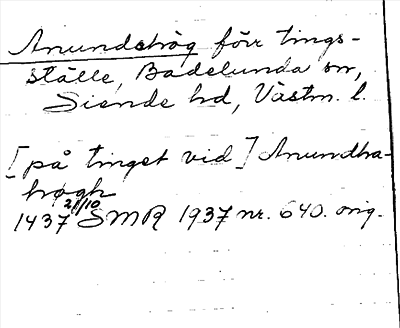 Anundshög förr tings-
ställe, Badelunda sn,
Siende hd, Västm. l.
[på tinget vid] Anundha-
högh
1437 21/10 SMR 1937 nr. 640. orig.